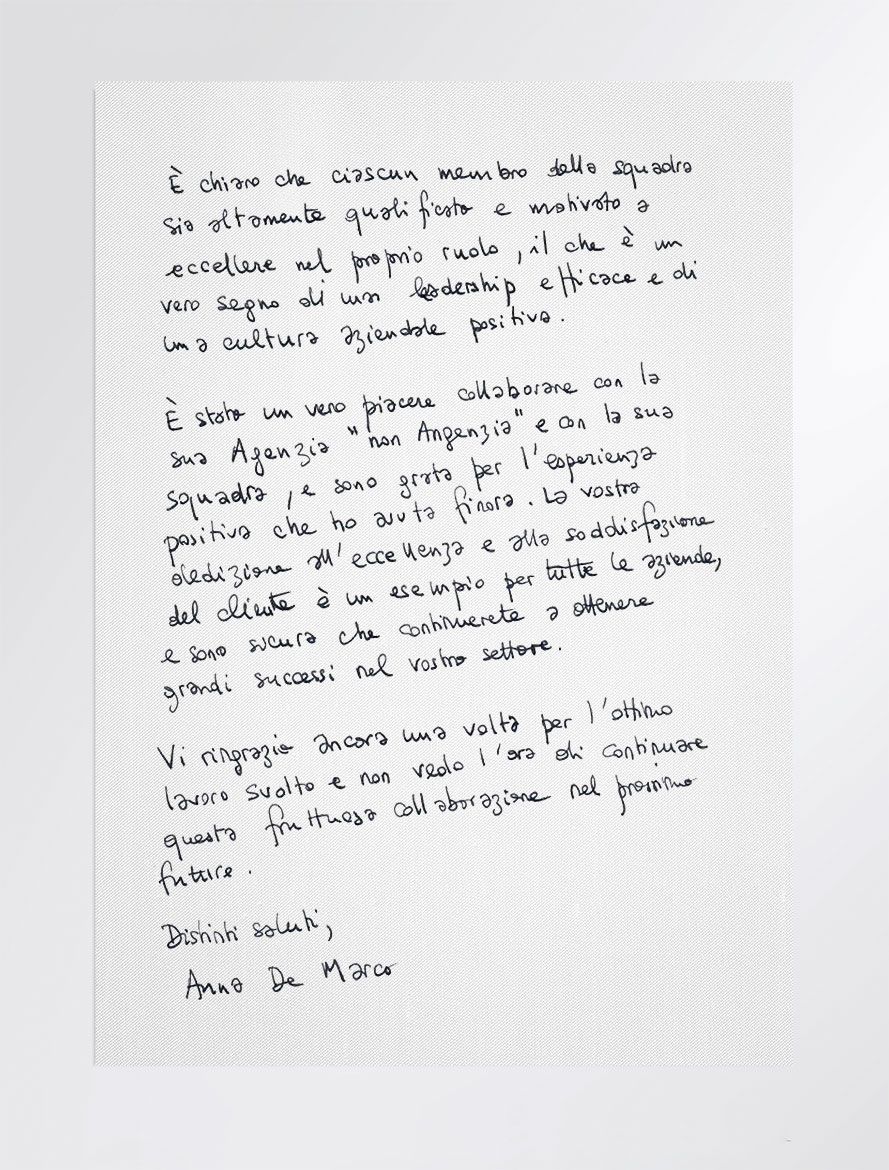 È chiaro che ciascun membro della squadra
sia altamente qualificato e motivato a
eccellere nel proprio ruolo, il che è un
vero segno di una leadership efficace e di
una cultura aziendale positiva.
È stato un vero piacere collaborare con la
sua Agenzia "non Angenzia" e con la sua
squadra, e sono grata per l'esperienza
positiva che ho avuta finora. La vostra
dedizione all'eccellenza e alla soddisfazione
del cliente è un esempio per tutte le aziende,
e sono sucura che continuerete a ottenere
grandi successi nel vostro settore.
Vi ringrazio ancora una volta per l'ottimo
lavoro svolto e non vedo l'ora di continuare
questa fruttuosa collaborazione nel prossimo
future.
Distinti saluti,
Anna De Marco